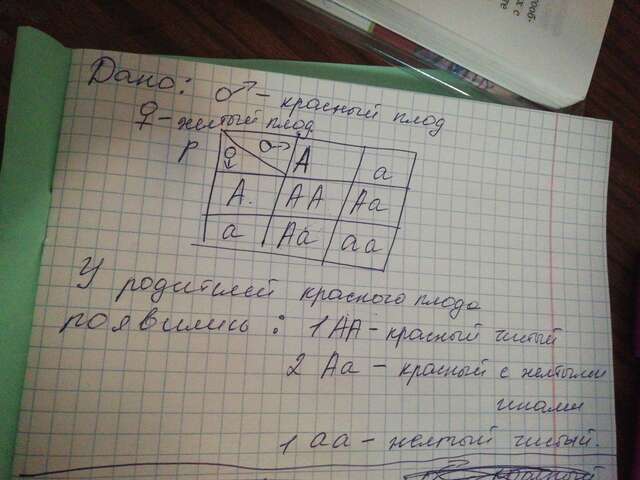 Дано: ♂ - красный плод
♀ - желтый плод
P ♀ ♂ A a
A. AA Aa
a Aa aa
У родителей красного плода
появились: 1 AA - красный чистый
2 Aa - красный с желтыми
1 aa - желтый чистый.